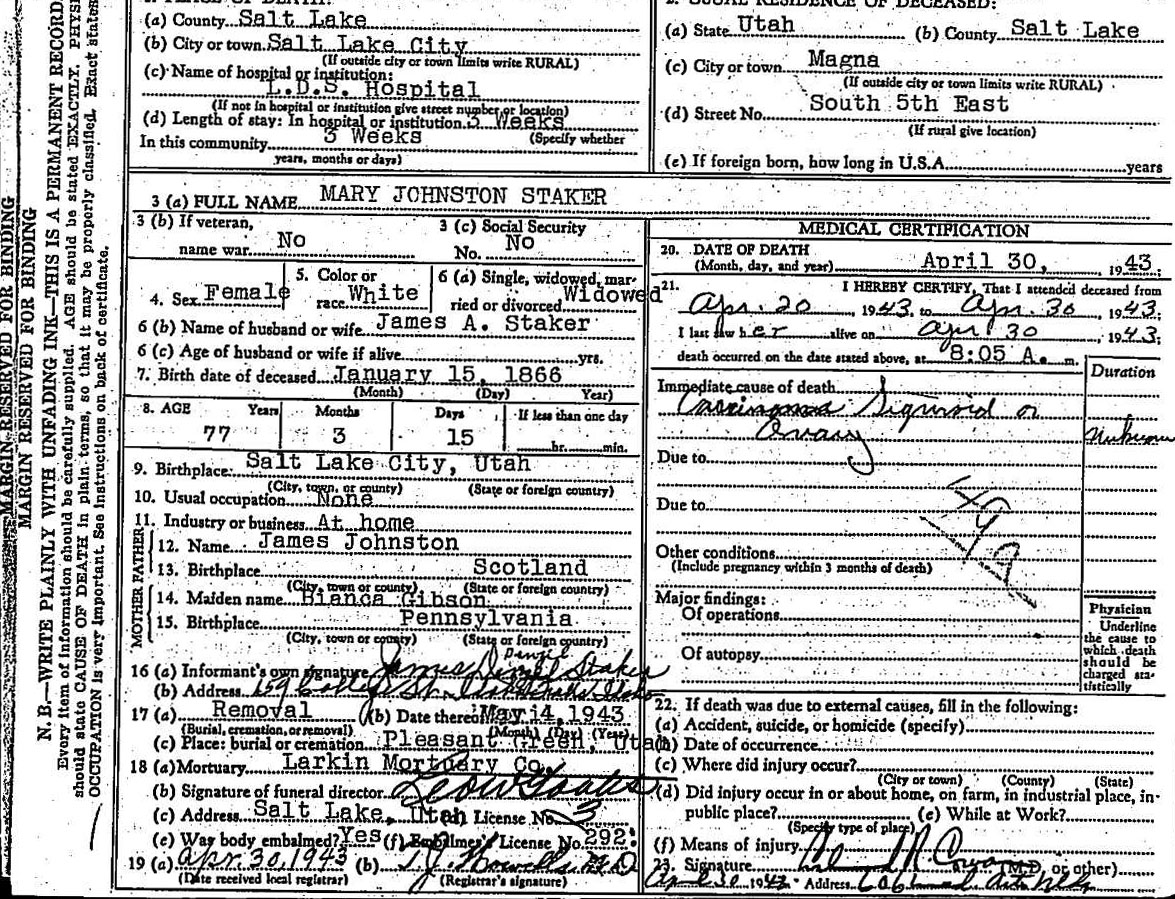 MARGIN RESERVED FOR BINDING
MARGIN RESERVED FOR BINDING
N. B.—WRITE PLAINLY WITH UNFADING INK—THIS IS A PERMANENT RECORD.
Every item of information should be carefully supplied. AGE should be stated EXACTLY. PHYSI
should state CAUSE OF DEATH in plain terms, so that it may be properly classified. Exact states
OCCUPATION is very important. See instructions on back of certificate.
(a) County Salt Lake
(b) City or town Salt Lake City
(If outside city or town limits write RURAL)
(c) Name of hospital or institution:
L.D.S. Hospital
(If not in hospital or institution give street number or location)
(d) Length of stay: In hospital or institution 3 Weeks
In this community 3 Weeks (Specify whether
years, months or days)
2. USUAL RESIDENCE OF DECEASED:
(a) State Utah (b) County Salt Lake
(c) City or town Magna
(If outside city or town limits write RURAL)
(d) Street No. South 5th East
(If rural give location)
(e) If foreign born, how long in U.S.A. years
3 (a) FULL NAME MARY JOHNSTON STAKER
3 (b) If veteran, name war No
3 (c) Social Security No. No
4. Sex Female
5. Color or race White
6 (a) Single, widowed, married or divorced Widowed
6 (b) Name of husband or wife James A. Staker
6 (c) Age of husband or wife if alive yrs.
7. Birth date of deceased January 15, 1866
(Month) (Day) Year)
8. AGE Years Months Days If less than one day
77 3 15 hr. min.
9. Birthplace: Salt Lake City, Utah
(City, town, or county) (State or foreign country)
10. Usual occupation None
11. Industry or business At home
FATHER
12. Name James Johnston
13. Birthplace Scotland
(City, town or county) (State or foreign country)
MOTHER
14. Maiden name Bianca Gibson
15. Birthplace Pennsylvania
(City, town or county) (State or foreign country)
16 (a) Informant's own signature James Staker
(b) Address 159
17 (a) Removal (b) Date thereof May 4, 1943
(Burial, cremation, or removal) (Month) (Day) (Year)
(c) Place: burial or cremation Pleasant Green, Utah
18 (a) Mortuary Larkin Mortuary Co.
(b) Signature of funeral director
(c) Address Salt Lake, Utah License No. 3
(e) Was body embalmed? Yes (f) Embalmer's License No. 292
19 (a) Apr. 30, 1943 (b)
(Date received local registrar) (Registrar's signature)
MEDICAL CERTIFICATION
20. DATE OF DEATH
(Month, day, and year) April 30, 1943.
21. I HEREBY CERTIFY, That I attended deceased from
Apr. 20 1943 to Apr. 30 1943:
I last saw her alive on Apr 30 1943:
death occurred on the date stated above, at 8:05 A. m.
Duration
Immediate cause of death
Carcinoma Sigmoid or
Ovary
Due to
Due to
Other conditions
(Include pregnancy within 3 months of death)
Major findings:
Of operations
Of autopsy
Physician
Underline
the cause to
which death
should be
charged sta-
tistically
22. If death was due to external causes, fill in the following:
(a) Accident, suicide, or homicide (specify)
(b) Date of occurrence
(c) Where did injury occur?
(City or town) (County) (State)
(d) Did injury occur in or about home, on farm, in industrial place, in
public place? (e) While at Work?
(Specify type of place)
(f) Means of injury
23. Signature (M.D. or other)
April 30 1943 Address